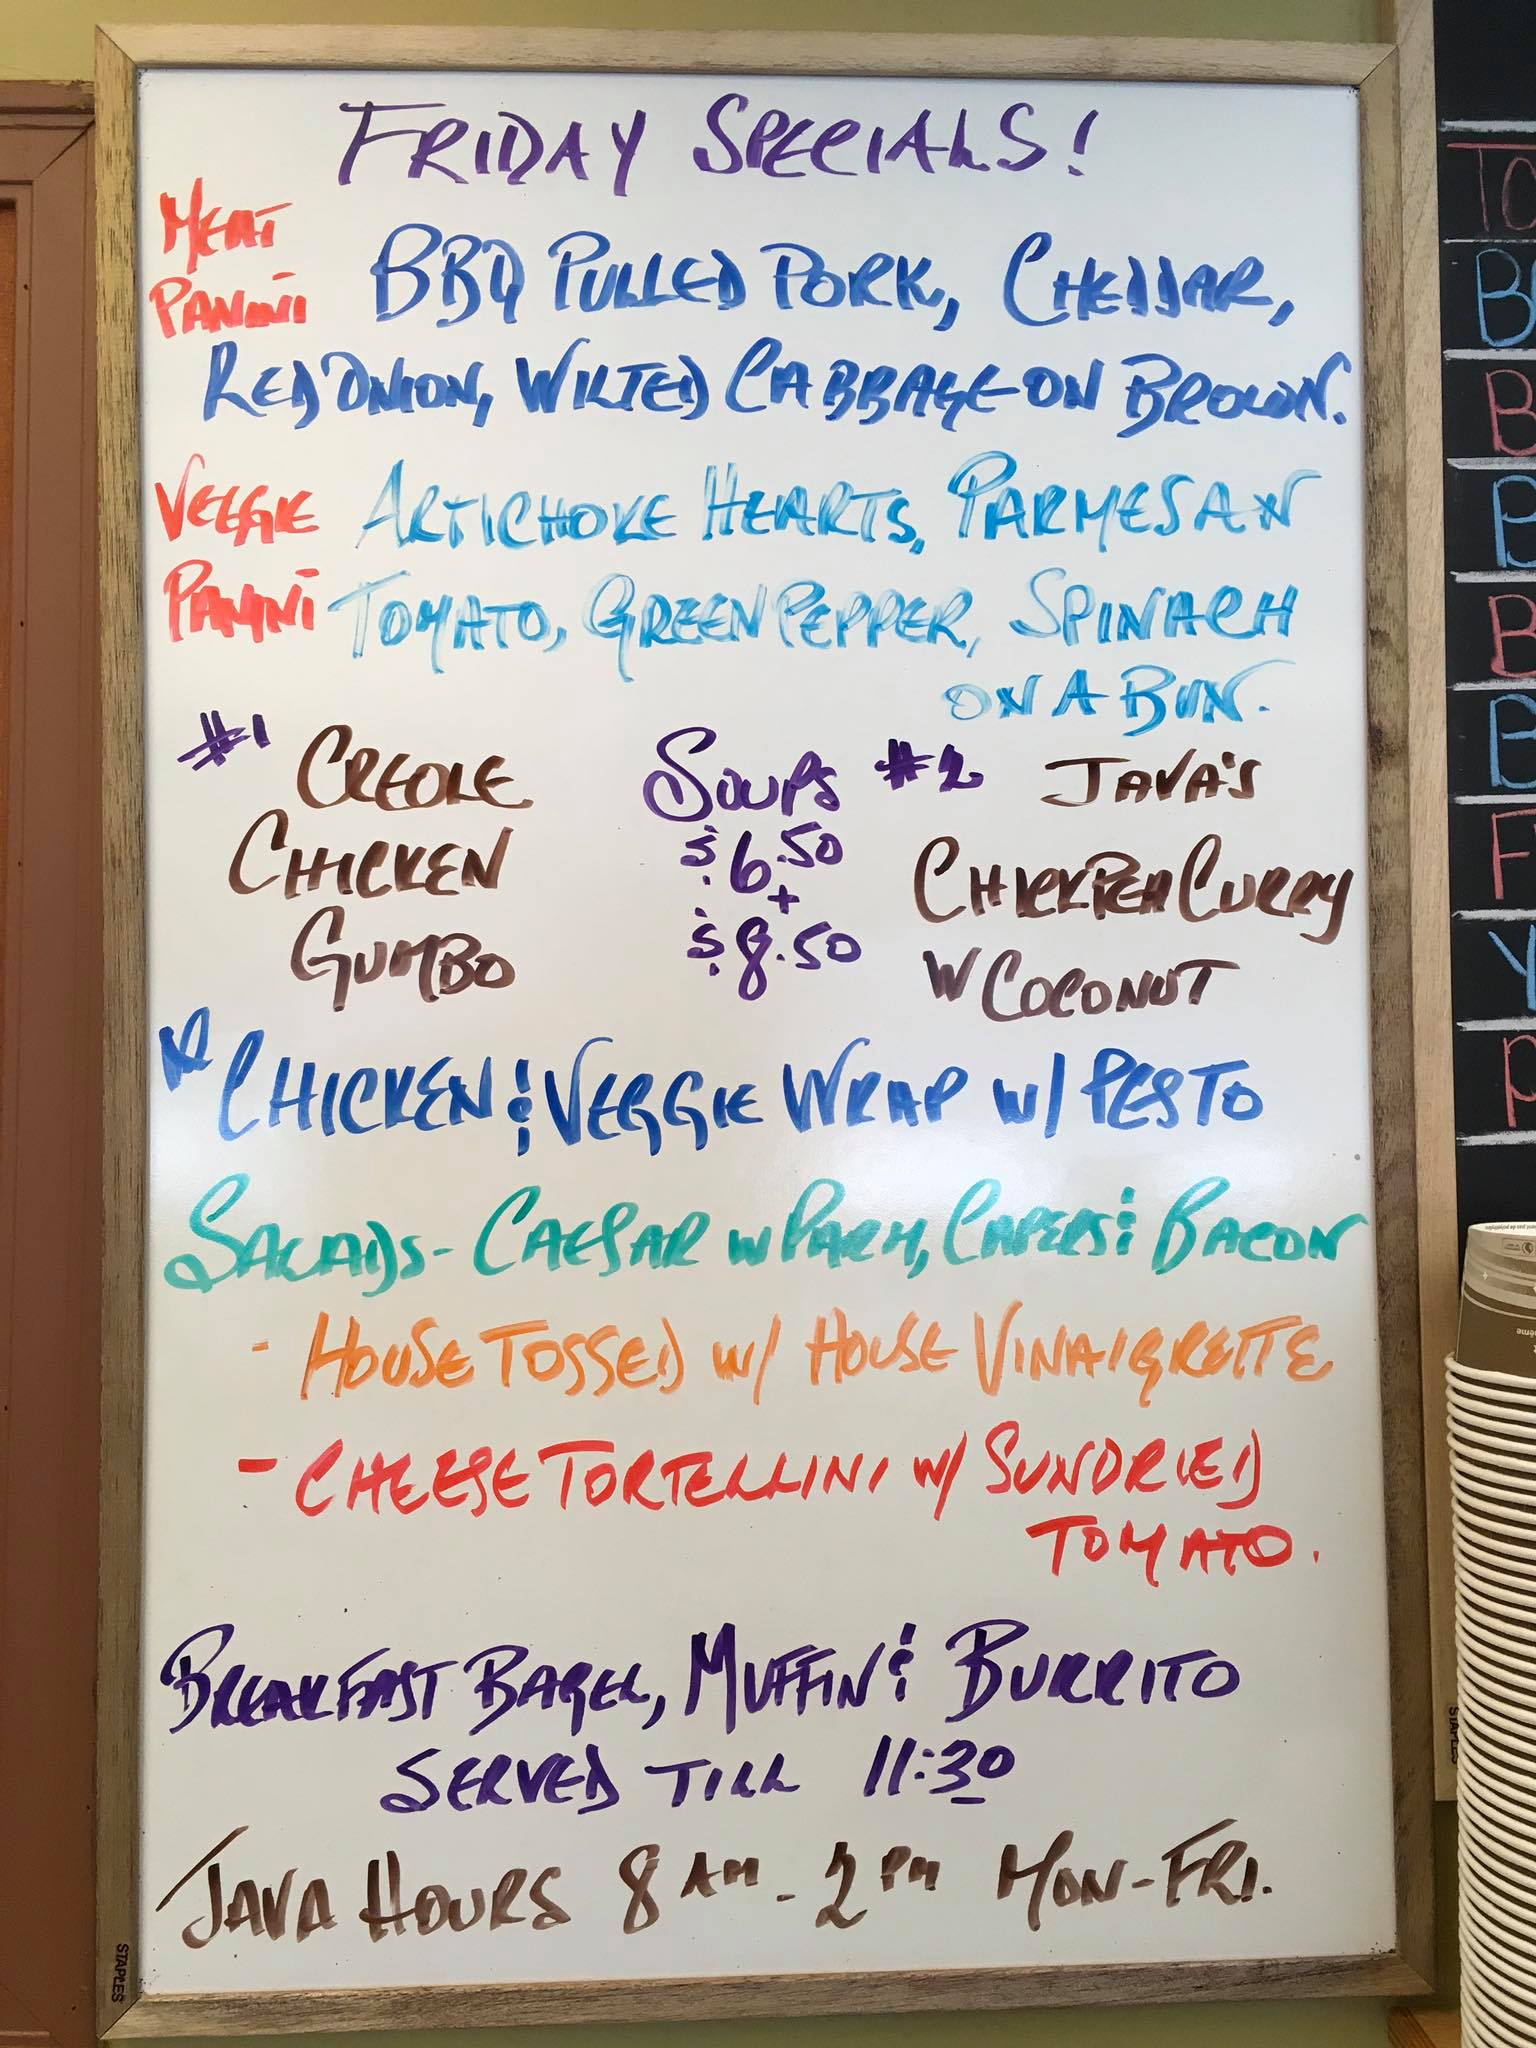 FRIDAY SPECIALS!
MEAT
PANINI
BBQ PULLED PORK, CHEDDAR,
RED ONION, WILTED CABBAGE ON BROWN.
VEGGIE
PANINI
ARTICHOKE HEARTS, PARMESAN
TOMATO, GREEN PEPPER, SPINACH
ON A BUN.
#1 CREOLE
CHICKEN
GUMBO
SOUPS
$6.50
+
$8.50
#2 JAVA'S
CHICKPEA CURRY
W COCONUT
CHICKEN & VEGGIE WRAP W/ PESTO
SALADS - CAESAR W PARM, CAPERS & BACON
- HOUSE TOSSED W/ HOUSE VINAIGRETTE
- CHEESE TORTELLINI W/ SUNDRIED
TOMATO.
BREAKFAST BAGEL, MUFFIN & BURRITO
SERVED TILL 11:30
JAVA HOURS 8 AM - 2 PM MON-FRI.
STAPLES
TO
B
B
P
B
B
F
Y
P
STAPLES